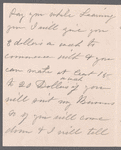 pay you while learning
you I will give you
8 dollars a week to
commence with & you
can make at least 15
a week
or 20 Dollars if you
will suit my Business
So if you will come
down & I will tell